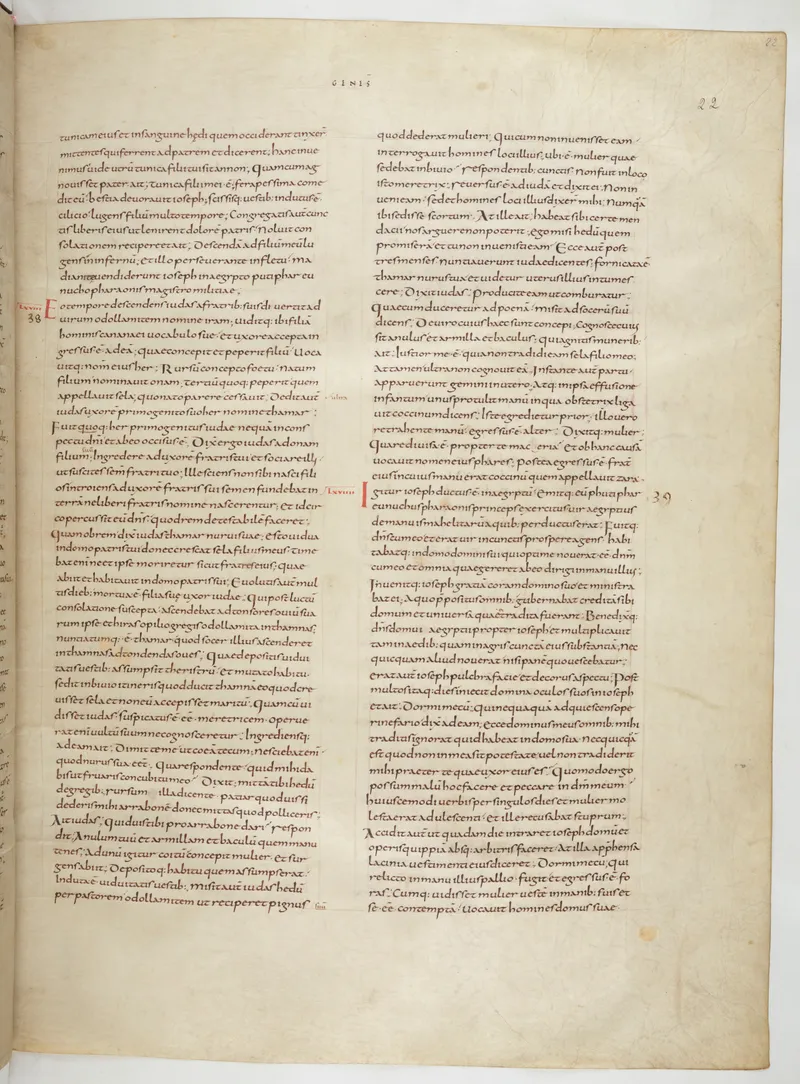 GENIS
22
tunicam eius et in sanguine hędi quem occiderant tinxer̄
mittentes qui ferrent ad patrem et dicerent; hanc inue
nimus uide utrū tunica filii tui sit an non; Quam cum ag
nouisset pater ait; tunica filii mei ē; fera pessima come
dit eū; bestia deuorauit ioseph; scissisq; uestib; indutus ē
cilicio lugens filiū multo tempore; Congregatis aut̄ cunc
tis liberis eius ut lenirent dolorē patris noluit con
solationem recipere et ait; Descendā ad filiū meū lu
gens in infernū; et illo perseuerante in fletu; ma
dianei uendiderunt ioseph in aegypto putiphar eu
nucho pharaonis magistro militiae;
Eo tempore descendens iudas a fratrib; suis diuertit ad
38
uirum odollamitem nomine iram; uiditq; ibi filiā
hominis chananaei uocabulo sue; et uxore accepta in
gressus ē ad eā; quae concepit et peperit filiū uoca
uitq; nomen eius her; Rursū concepto foetu; natum
filium nominauit onam; tertiū quoq; peperit quem
appellauit sela; quo nato parere cessauit; Dedit aut̄
iudas uxorē primogenito suo her nomine thamar;
Fuitq; her primogenitus iudae nequā in cons
pectu dn̄i et ab eo occisus ē; Dix̄ ergo iudas ad onam
filium; Ingredere ad uxorē fratris tui et sociare illi
ut suscites sem̄ fratri tuo; Ille sciens non sibi nasci fili
os introiens ad uxorē fratris sui semen fundebat in
terrā ne liberi fratris nomine nascerentur; et idcir
co percussit eū dn̄s quod rem detestabilē faceret;
Quam obrem dix̄ iudas thamar nurui suae; esto uidua
in domo patris tui donec crescat sela filius meus; time
bat eni ne et ipse moriretur sicut fratres eius; quae
abiit et habitauit in domo patris sui; Euolutis aut̄ mul
tis dieb; mortua ē filia sue uxor iudae; qui post luctū
consolatione suscepta ascendebat ad tonsores ouiū sua
rum ipse et hiras opilio gregis odollamita in thamnas
nuntiatumq; ē thamar quod socer illius ascenderet
in thamnas ad tondendas oues; Quae depositis uidui
tatis uestib; assumpsit theristrū; et mutato habitu
sedit in biuio itineris quod ducit thamnā eo quod cre
uisset sela et non eū accepisset maritū; Quam cū ui
disset iudas suspicatus ē ēē meretricem operue
rat eni uultū suum ne cognosceretur; Ingrediensq;
ad eam ait; Dimitte me ut coeā tecum; nesciebat eni
quod nurus sua eēt; Quae respondente quid mihi da
bis ut fruaris concubitu meo; Dixit; mittā tibi hedū
de gregib; rursum illa dicente patiar quod uis si
dederis mihi arrabonē donec mittas quod polliceris;
Ait iudas; quid uis tibi pro arrabone dari; respon
dit; Anulum tuū et armillam et baculū quem manu
tenes; Ad unū igitur coitū concepit mulier; et sur
gens abiit; Depositoq; habitu quem assumpserat
induta ē uiduitatis uestib; misit aut̄ iudas hedū
per pastorem odollamitem ut reciperet pignus
quod dederat mulieri; Qui cum non inuenisset eam
interrogauit homines loci illius; ubi ē mulier quae
sedebat in biuio; respondentib; cunctis non fuit in loco
isto meretrix; reuersus ē ad iudā et dixit ei; Non in
ueni eam; sed et homines loci illius dixer̄ mihi; Numquā
ibi sedisse scortum; At ille ait; habeat sibi certe men
dacii nos arguere non poterit; ego misi hedū quem
promiseram et tu non inuenisti eam; Ecce aut̄ post
tres menses nuntiauerunt iudae dicentes; fornicata ē
thamar nurus tua et uidetur uterus illius intumes
cere; Dixit iudas; producite eam ut comburatur;
Quae cum duceretur ad poenā; misit ad socerū suū
dicens; De uiro cuius haec sunt concepi; Cognosce cuius
sit anulus et armilla et baculus; qui agnitis munerib;
ait; Iustior me ē; quia non tradidi eam sela filio meo;
Attamen ultra non cognouit eā; Instante aut̄ partu
apparuerunt gemini in utero; Atq; in ipsa effusione
infantium unus protulit manū in qua obstetrix liga
uit coccinum dicens; Iste egredietur prior; illo uero
retrahente manū; egressus ē alter; Dixitq; mulier;
Quare diuisa ē propter te maceria; et ob hanc causā
uocauit nomen eius phares; postea egressus ē frat̄
eius in cuius manu erat coccinū quem appellauit zara;
Igitur ioseph ductus ē in aegyptū; Emitq; eū phutiphar
39
eunuchus pharaonis princeps exercitus uir aegyptius
de manu ismahelitarū a quib; perductus erat; Fuitq;
dn̄s cum eo et erat uir in cunctis prospere agens; habi
tabatq; in domo domini sui qui optime nouerat eē dn̄m
cum eo et omnia quae gereret ab eo dirigi in manu illius;
Inuenitq; ioseph gratiā coram domino suo et ministra
bat ei; a quo ppositus omnib; gubernabat creditā sibi
domum et uniuersa quae tradita fuerant; Benedixitq;
dn̄s domui aegyptii propter ioseph et multiplicauit
tam in aedib; quam in agris cunctā eius substantiā; nec
quicquam aliud nouerat nisi panē quo uescebatur;
erat aut̄ ioseph pulchra facie et decorus aspectu; Post
multos itaq; dies iniecit domina oculos suos in ioseph
et ait; Dormi mecū; qui nequaquā adquiescens ope
ri nefario dix̄ ad eam; ecce dominus meus omnib; mihi
traditis ignorat quid habeat in domo sua; nec quicquā
est quod non in mea sit potestate uel non tradiderit
mihi praeter te quae uxor eius es; Quomodo ergo
possum malū hoc facere et peccare in dn̄m meum
huiuscemodi uerbis per singulos dies et mulier mo
lesta erat adulescenti; et ille recusabat stuprum;
Accidit aut̄ ut quadam die intraret ioseph domū et
operis quippiā absq; arbitris faceret; At illa apphensa
lacinia uestimenti eius diceret; Dormi mecū; qui
relicto in manu illius pallio; fugit et egressus ē fo
ras; Cumq; uidisset mulier uestē in manib; suis et
se ēē contemptā; uocauit homines domus suae